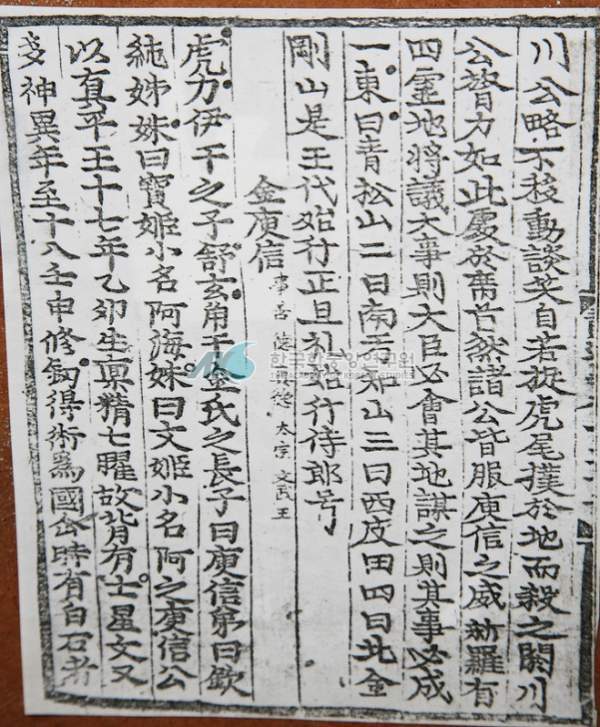 川公略不移動談笑自若捉虎尾撲於地而殺之閼川
公膂力如此處於席首然諸公皆服庾信之威新羅有
四靈地將議大事則大臣必會其地謀之則其事必成
一東曰青松山二曰南亐知山三曰西皮田四曰北金
剛山是王代始行正旦礼始行侍郎号
金庾信
事善德眞德 太宗 文武王
虎力伊干之子舒玄角干金氏之長子曰庾信弟曰欽
純姊妹曰寶姬小名阿海妹曰文姬小名阿之庾信公
以真平王十七年乙卯生禀精七曜故背有七星文又
多神異年至十八壬申修釼得術爲國仙時有白石者
한국학중앙연구원